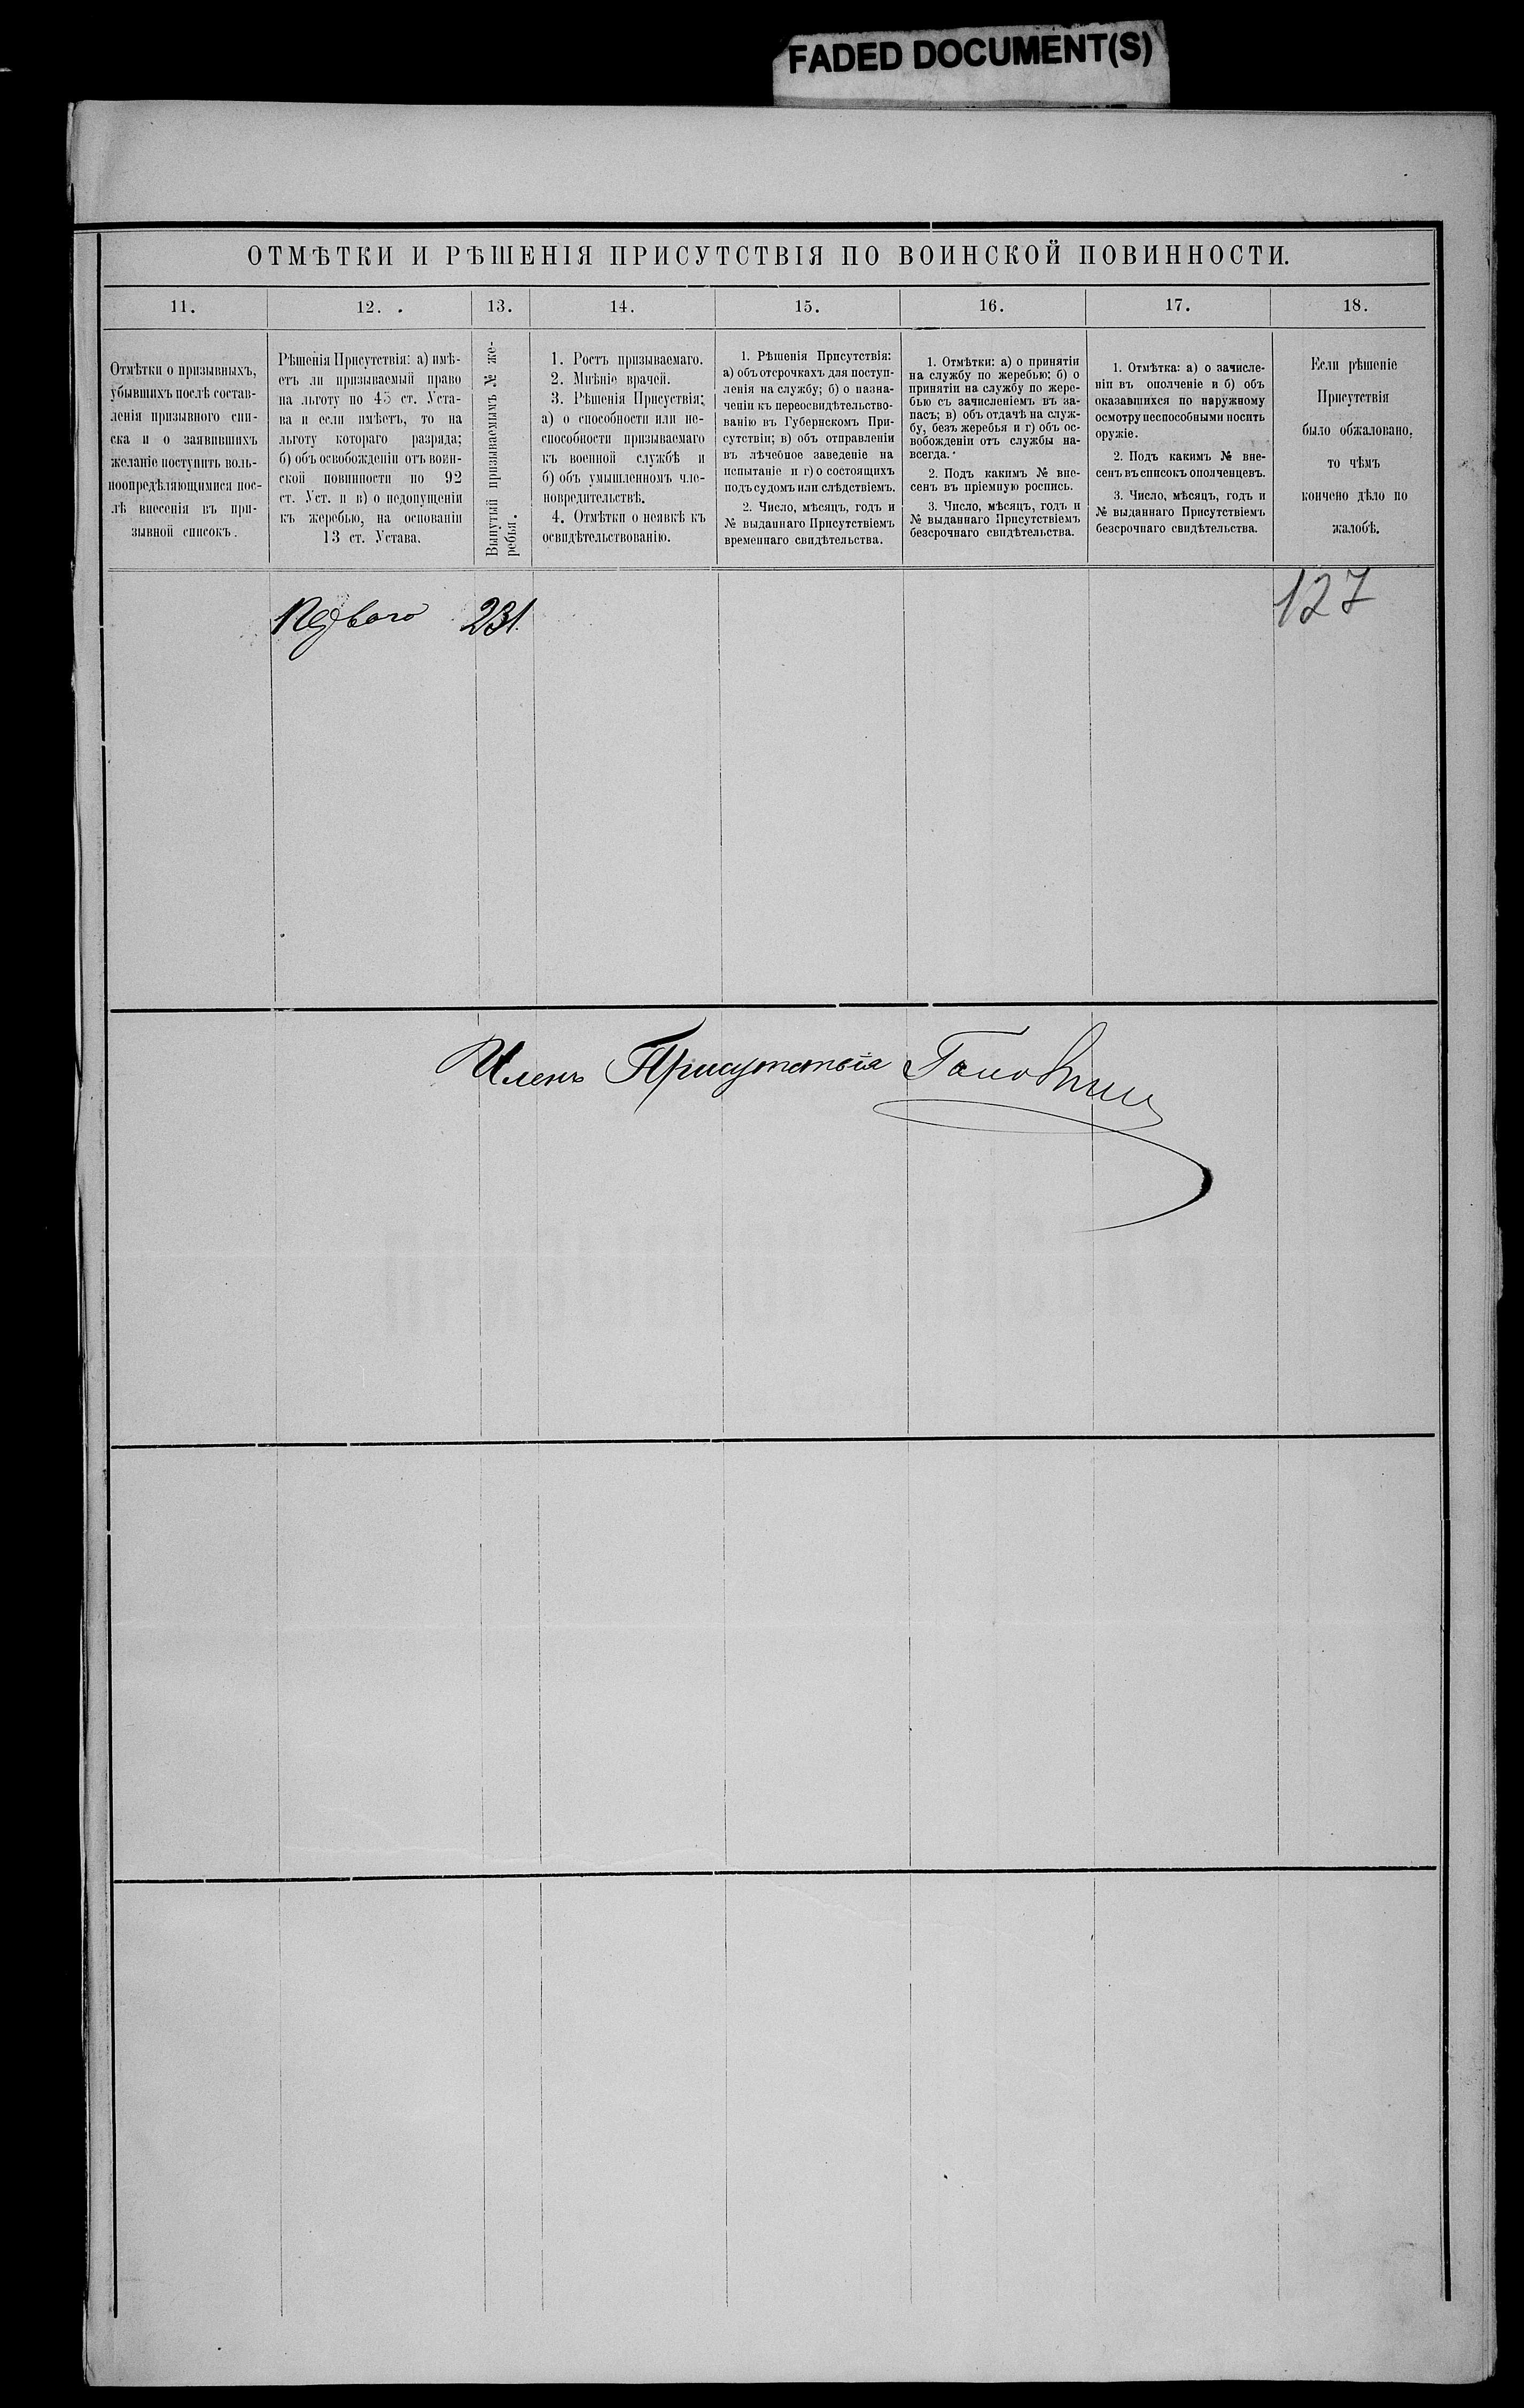 FADED DOCUMENT(S)
ОТМѢТКИ И РѢШЕНІЯ ПРИСУТСТВІЯ ПО ВОИНСКОЙ ПОВИННОСТИ.
11.
12.
13.
14.
15.
16.
17.
18.
Отмѣтки о призывныхъ,
убывшихъ послѣ состав-
ленія призывного спи-
ска и о заявившихъ
желаніе поступить воль-
ноопредѣляющимися пос-
лѣ внесенія въ при-
зывной списокъ.
Рѣшенія Присутствія: а) имѣ-
етъ ли призываемый право
на льготу по 45 ст. Уста-
ва и если имѣетъ, то на
льготу котораго разряда;
б) объ освобожденіи отъ воин-
ской повинности по 92
ст. Уст. и в) о недопущеніи
къ жеребью, на основаніи
13 ст. Устава.
Вынутый призываемымъ № же-
ребья.
1. Ростъ призываемаго.
2. Мнѣніе врачей.
3. Рѣшенія Присутствія:
а) о способности или не-
способности призываемаго
къ военной службѣ и
б) объ умышленномъ чле-
новредительствѣ.
4. Отмѣтки о неявкѣ къ
освидѣтельствованію.
1. Рѣшенія Присутствія:
а) объ отсрочкахъ для поступ-
ленія на службу; б) о назна-
ченіи къ переосвидѣтельство-
ванію въ Губернскомъ При-
сутствіи; в) объ отправленіи
въ лѣчебное заведеніе на
испытаніе и г) о состоящихъ
подъ судомъ или слѣдствіемъ.
2. Число, мѣсяцъ, годъ и
№ выданнаго Присутствіемъ
временнаго свидѣтельства.
1. Отмѣтки: а) о принятіи
на службу по жеребью; б) о
принятіи на службу по жере-
бью съ зачисленіемъ въ за-
пасъ; в) объ отдачѣ на служ-
бу, безъ жеребья и г) объ ос-
вобожденіи отъ службы на-
всегда.
2. Подъ какимъ № вне-
сенъ въ пріемную роспись.
3. Число, мѣсяцъ, годъ и
№ выданнаго Присутствіемъ
безсрочнаго свидѣтельства.
1. Отмѣтка: а) о зачисле-
ніи въ ополченіе и б) объ
оказавшихся по наружному
осмотру неспособными носить
оружіе.
2. Подъ какимъ № вне-
сенъ въ списокъ ополченцевъ.
3. Число, мѣсяцъ, годъ и
№ выданнаго Присутствіемъ
безсрочнаго свидѣтельства.
Если рѣшеніе
Присутствія
было обжаловано,
то чѣмъ
кончено дѣло по
жалобѣ.
Первого 231.
127
Членъ Присутствія